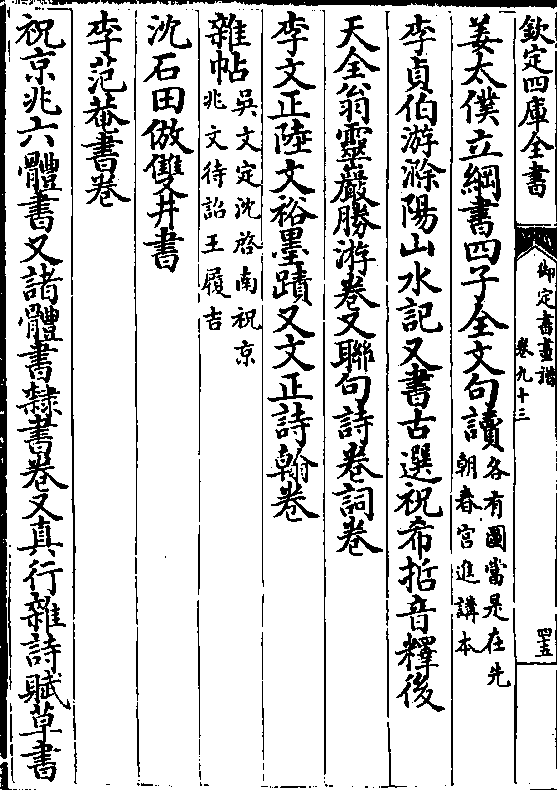 欽定四庫全書
御定書畫譜
卷九十三
四五
姜太僕立綱書四子全文句讀各有圖當是在先朝春宮進講本
李貞伯游滁陽山水記又書古選祝希哲音釋後
天全翁靈巖勝游卷又聯句詩卷詞卷
李文正陸文裕墨蹟又文正詩翰卷
雜帖吳文定沈啓南祝京兆文待詔王履吉
沈石田倣雙井書
李范菴書卷
祝京兆六體書又諸體書隸書卷又真行雜詩賦草書